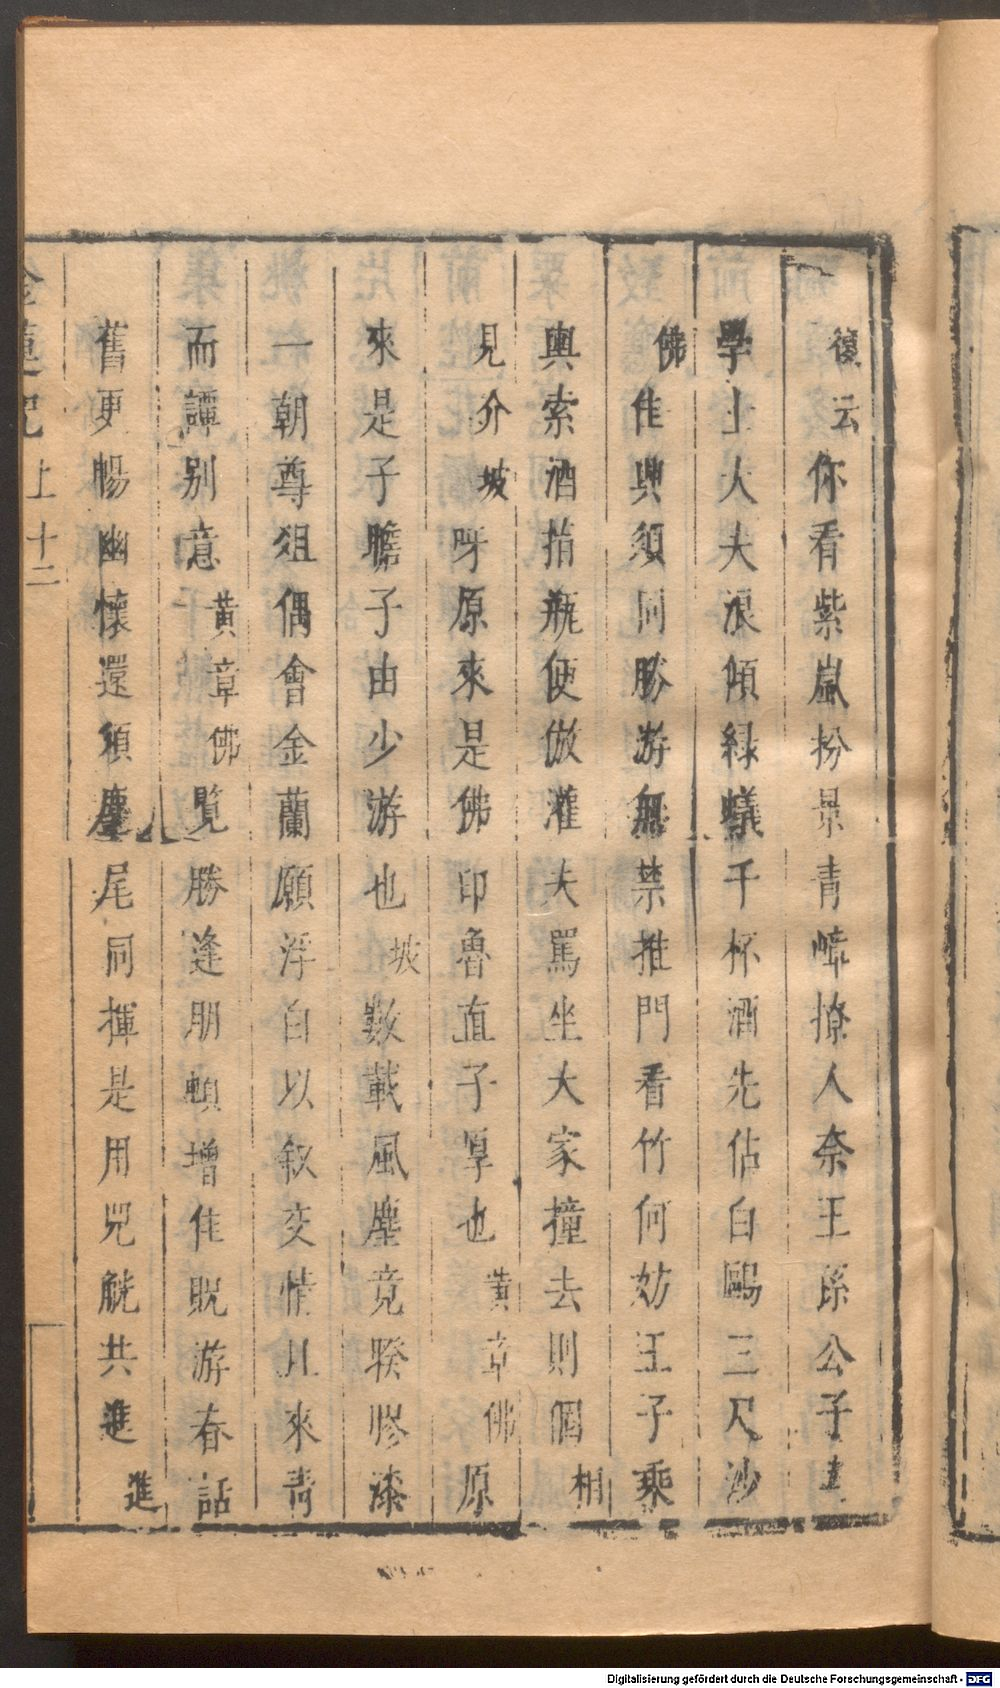 復云你看紫嵐扮景青嶂撩人奈王孫公子
學士大夫浪傾綠蟻千杯酒先佔白鷗三尺沙
佛佳興須同勝游無禁推門看竹何妨王子乘
輿索酒指瓶便倣灌夫罵坐大家撞去則個相
見介坡呀原來是佛印魯直子厚也黃章佛原
來是子瞻子由少游也坡數載風塵竟睽膠漆
一朝尊俎偶會金蘭願浮白以敘交情且來青
而譚別意黃章佛覧勝逢朋頓增佳貺游春話
舊更暢幽懷還須麈尾同揮是用兕觥共進進
金蓮記上十二
Digitalisierung gefördert durch die Deutsche Forschungsgemeinschaft - DFG